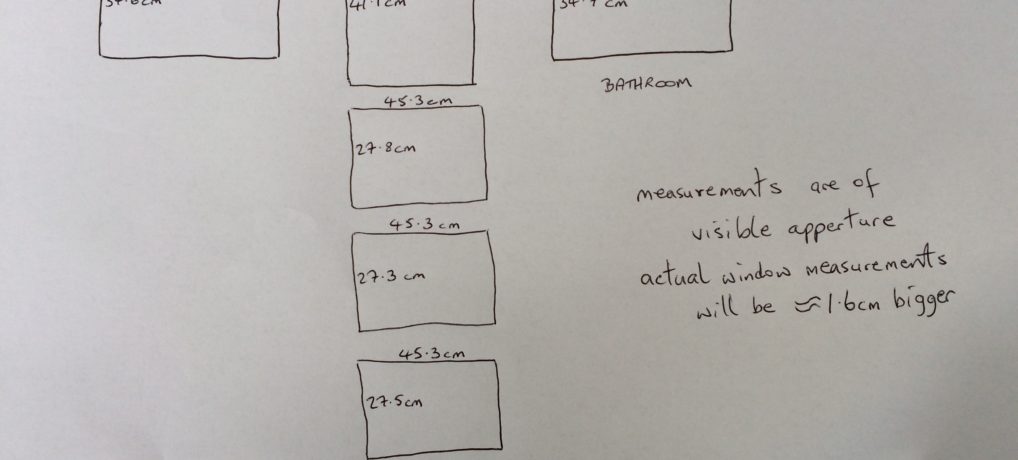 45.3cm
27.8cm
45.3cm
27.3 cm
45.3cm
27.5cm
BATHROOM
measurements are of
visible apperture
actual window measurements
will be ≈ 1.6cm bigger